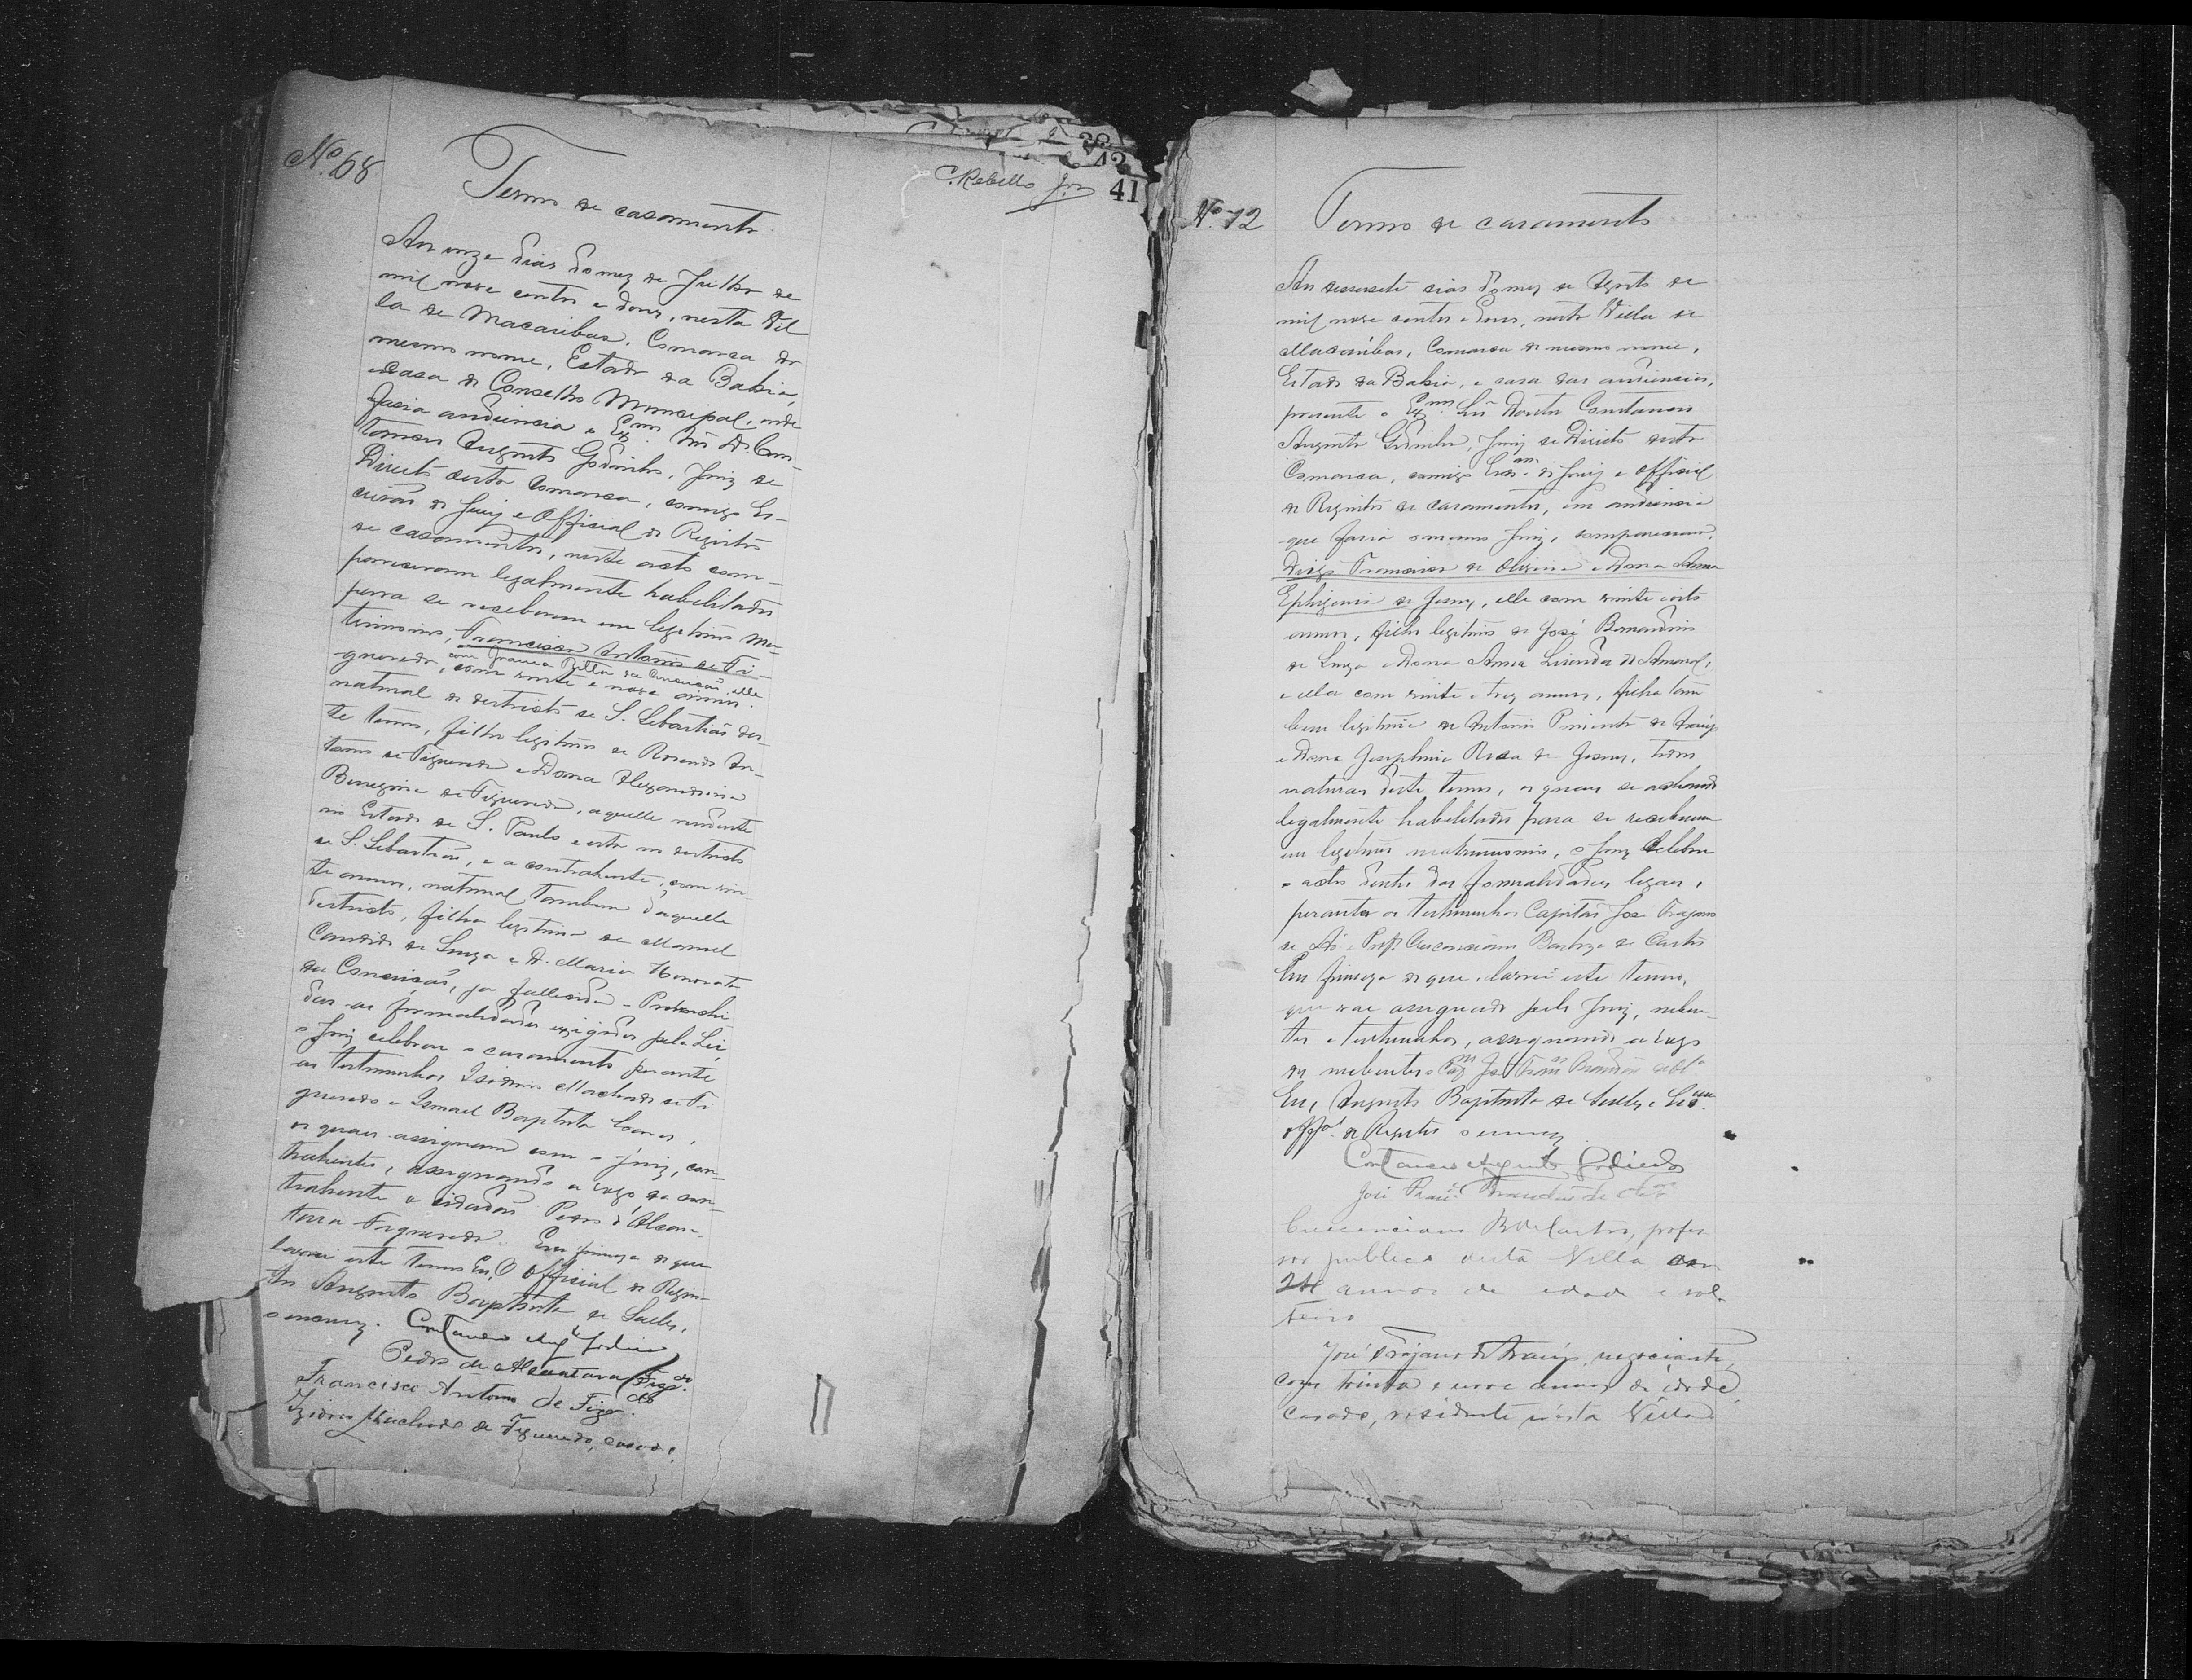 C. Rebello Jor
41
Nº 68
Termo de casamento
Aos onze dias do mez de Julho de
mil nove centos e dous, nesta Vil
la de Macaubas, Comarca do
mesmo nome, Estado da Bahia,
e casa do Conselho Municipal, onde
fasia audiencia o Exmo Snr Dr. Cons-
tancio Augusto Godinho, Juiz de
Direito desta Comarca, comigo Es-
crivão do Jury e Official do Registro
de casamentos, neste acto com-
pareceram legalmente habilitados
para se receberem em legitimo ma-
trimonio, Francisco Antonio de Fi-
gueredo, com Franca Bella da Conceição, elle
com vinte e nove annos,
natural do destricto de S. Sebastião des-
te termo, filho legitimo de Rosendo An-
tonio de Figueredo e Dona Alexandrina
de Figueredo, aquelle residente
no Estado de S. Paulo e esta no destricto
de S. Sebastião, e a contrahente, com vin
te annos, natural tambem daquelle
destricto, filha legitima de Manoel
Candido de Souza e D. Maria Honorata
da Conceição, ja fallecida. Prehenchi
das as formalidades exigidas pela Lei,
o Juiz celebrou o casamento perante
as testemunhas Isidorio Machado de Fi
gueredo e Ismael Baptista Soares,
os quaes assignam com o Juiz, con-
trahentes, assignando a rogo da con-
trahente o cidadão Pedro d'Alcan-
tara Figueredo. Em firmeza do que
lavrei este termo. Eu, O Official do Regis-
tro Augusto Baptista de Salles,
o escrevy. Constancio Augto Godinho
Pedro de Alcantara Figdo.
Francisco Antonio de Figdo.
Izidorio Machado de Figueredo, casado,
Nº 72
Termo de casamento
Aos desessete dias do mez de Agosto de
mil nove centos e dous, nesta Villa de
Macaúbas, Comarca do mesmo nome,
Estado da Bahia, e casa das audiencias,
presente o Exmo Snr Doutor Constancio
Augusto Godinho, Juiz de Direito desta
Comarca, comigo Escam do Jury e Official
do Registro de casamentos, em audiencia
que fasia o mesmo Juiz, compareceram,
Diogo Francisco de Oliveira e Dona Anna
Ephigenia de Jesus, elle com vinte e oito
annos, filho legitimo de José Bernardino
de Souza e Dona Anna do Amaral,
e ella com vinte e trez annos, filha tam
bem legitima de Antonio Pimenta de Araujo
e Dona Josephina Rosa de Jesus, todos
naturaes deste termo, os quaes se achando
legalmente habilitados para se receberem
em legitimo matrimonio, o Juiz celebrou
o acto dentro das formalidades legaes,
perante as testemunhas Capitão José Trajano
de e Profr Crescenciano de Castro
Em firmeza do que, lavrei este termo,
que vae assignado pelo Juiz, nuben-
tes e testemunhas, assignando a rogo
dos nubentes o Capm José Franco Brandão
Eu, Augusto Baptista de Salles, Escam
offal do Registro o escrevy
Constancio Augusto Godinho
José Franco Brandão de
Crescenciano B de Castro, profes
sor publico desta Villa com
24 annos de edade e sol-
teiro
José Trajano de Araújo, negociante,
com trinta e nove annos de idade,
casado, residente nésta Villa